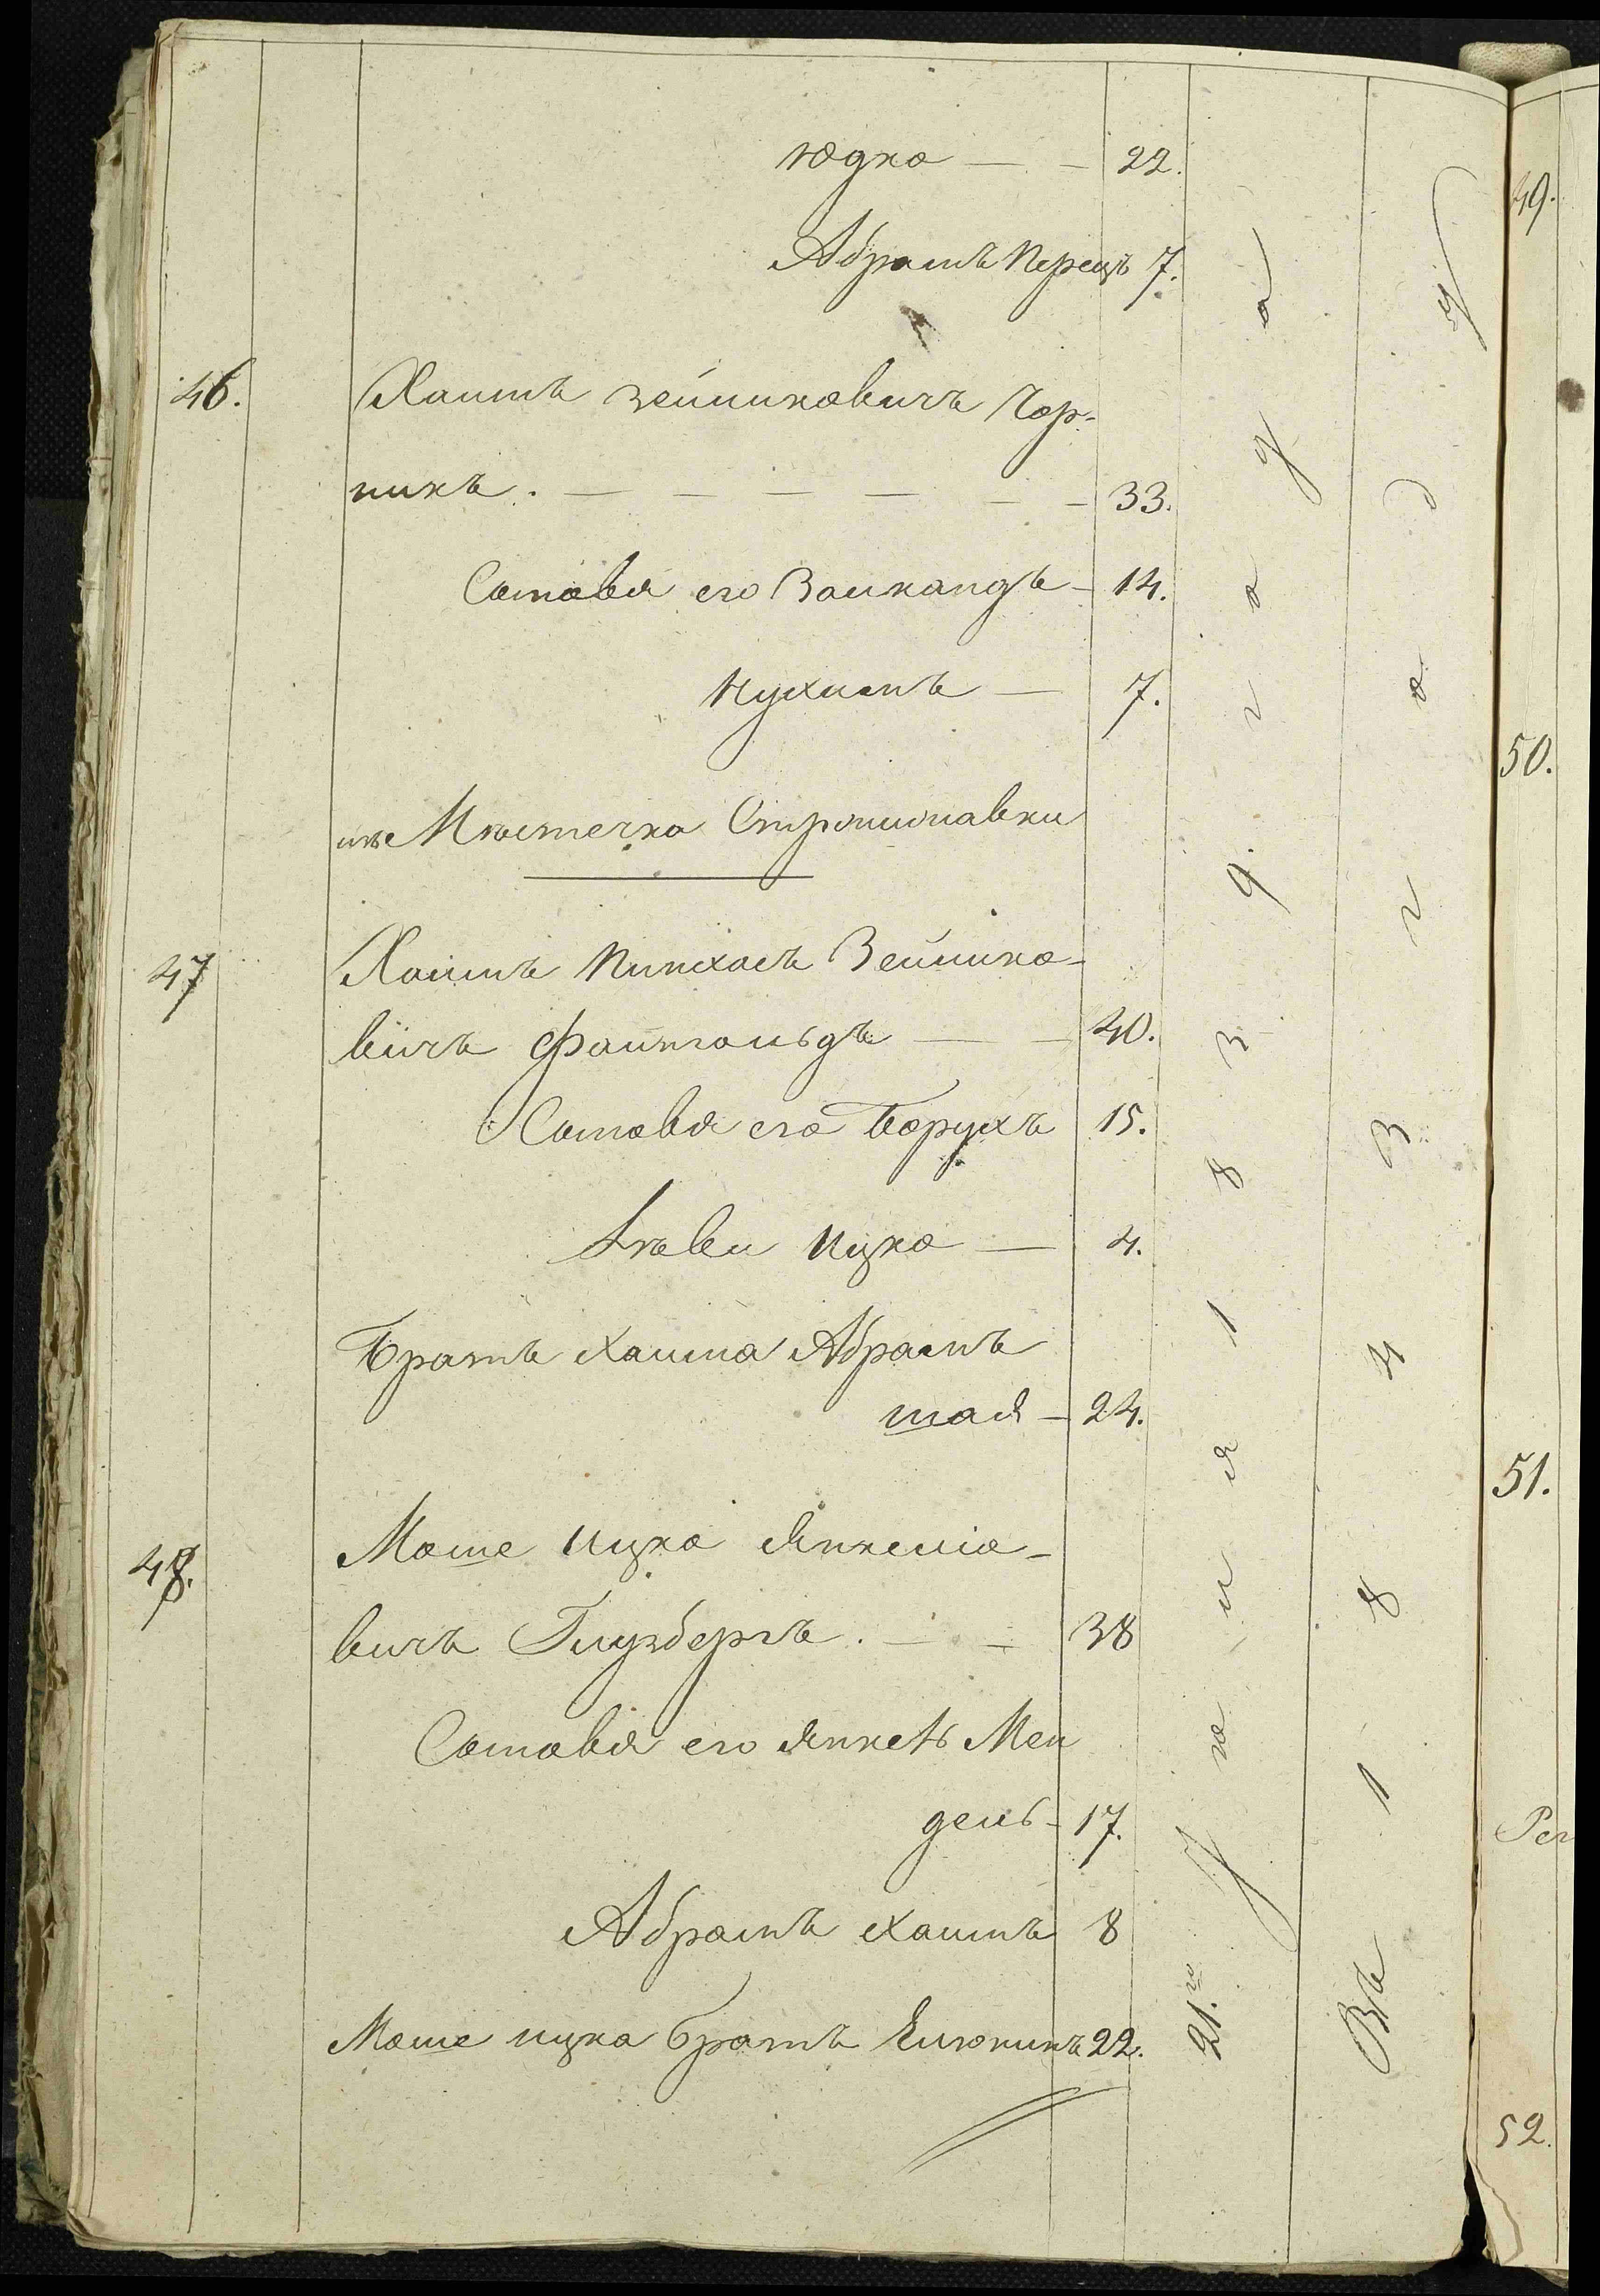 Юдко — — 22.
Абрамъ Перецъ 7.
46. Хаимъ Зейликовичъ Чер-
никъ . — — — — — — 33.
Сыновья его Залкандъ — 14.
Нухимъ — 7.
изъ Мѣстечка Стрыжавки
47 Хаимъ Пинхасъ Зейлико-
вичъ Файнгольдъ — — 40.
Сыновья его Борухъ 15.
Лѣви Ицко — 4.
Братъ Хаима Абрамъ
шая — 24.
48. Моше Ицко Янкелιо-
вичъ Глузбергъ . — — 38
Сыновья его Янкель Мен
дель — 17.
Абрамъ Хаимъ 8
Моше Ицка братъ Елюкимъ 22.
21.го Июня 1839. года
Въ 1843 году
49.
50.
51.
52.